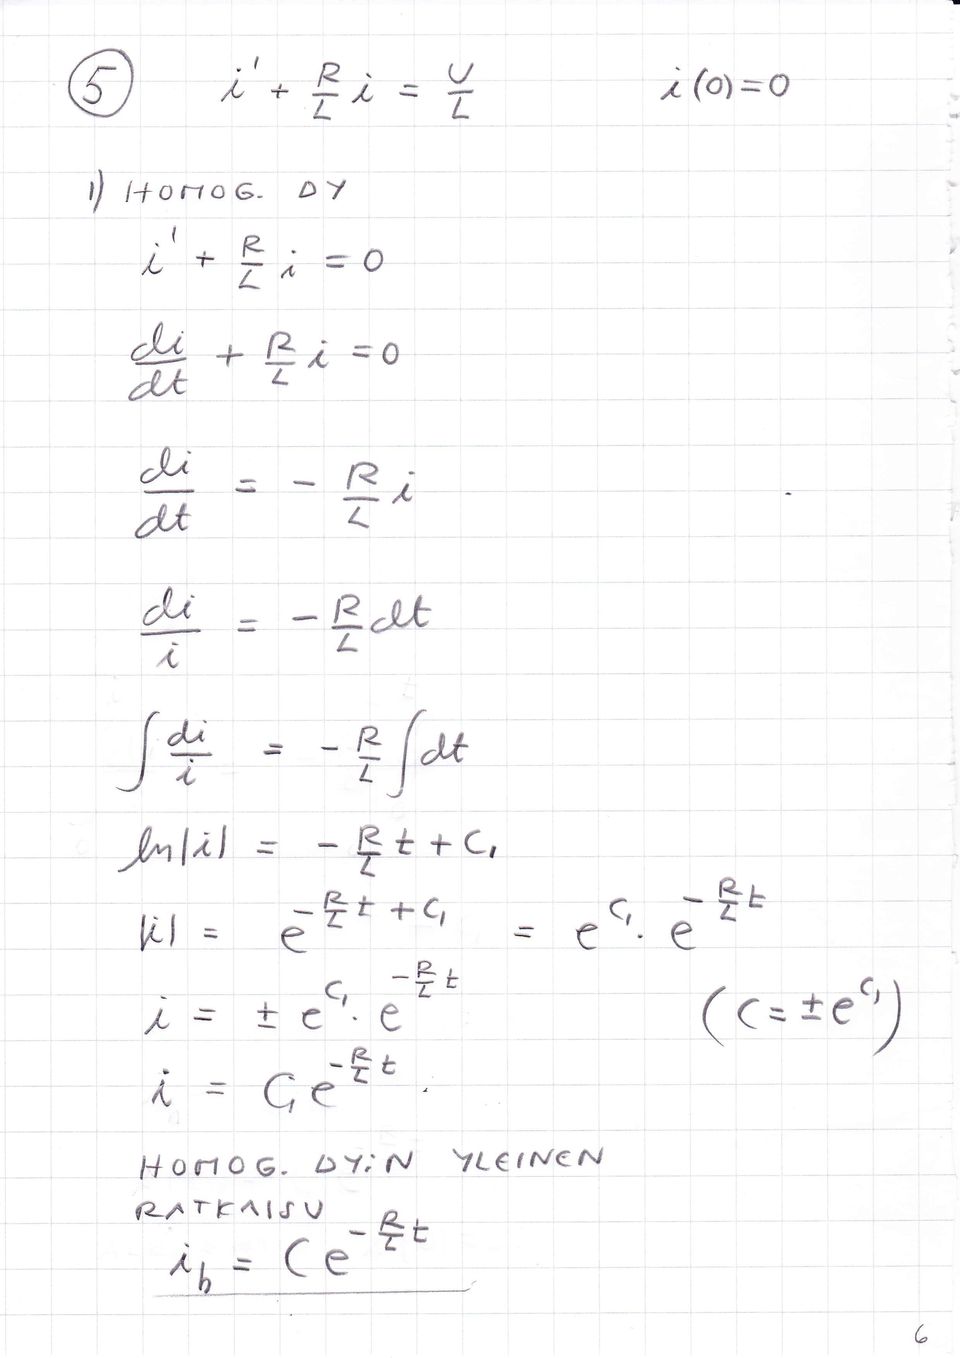 5 i' + R/L i = U/L i(0)=0
1) HOMOG. DY
i' + R/L i = 0
di/dt + R/L i = 0
di/dt = - R/L i
di/i = - R/L dt
∫ di/i = - R/L ∫ dt
ln|i| = - R/L t + C₁
|i| = e^(-R/L t + C₁) = e^C₁ · e^(-R/L t)
i = ± e^C₁ · e^(-R/L t) (C = ± e^C₁)
i = C₁ e^(-R/L t)
HOMOG. DY:N YLEINEN
RATKAISU
i_h = C e^(-R/L t)
6